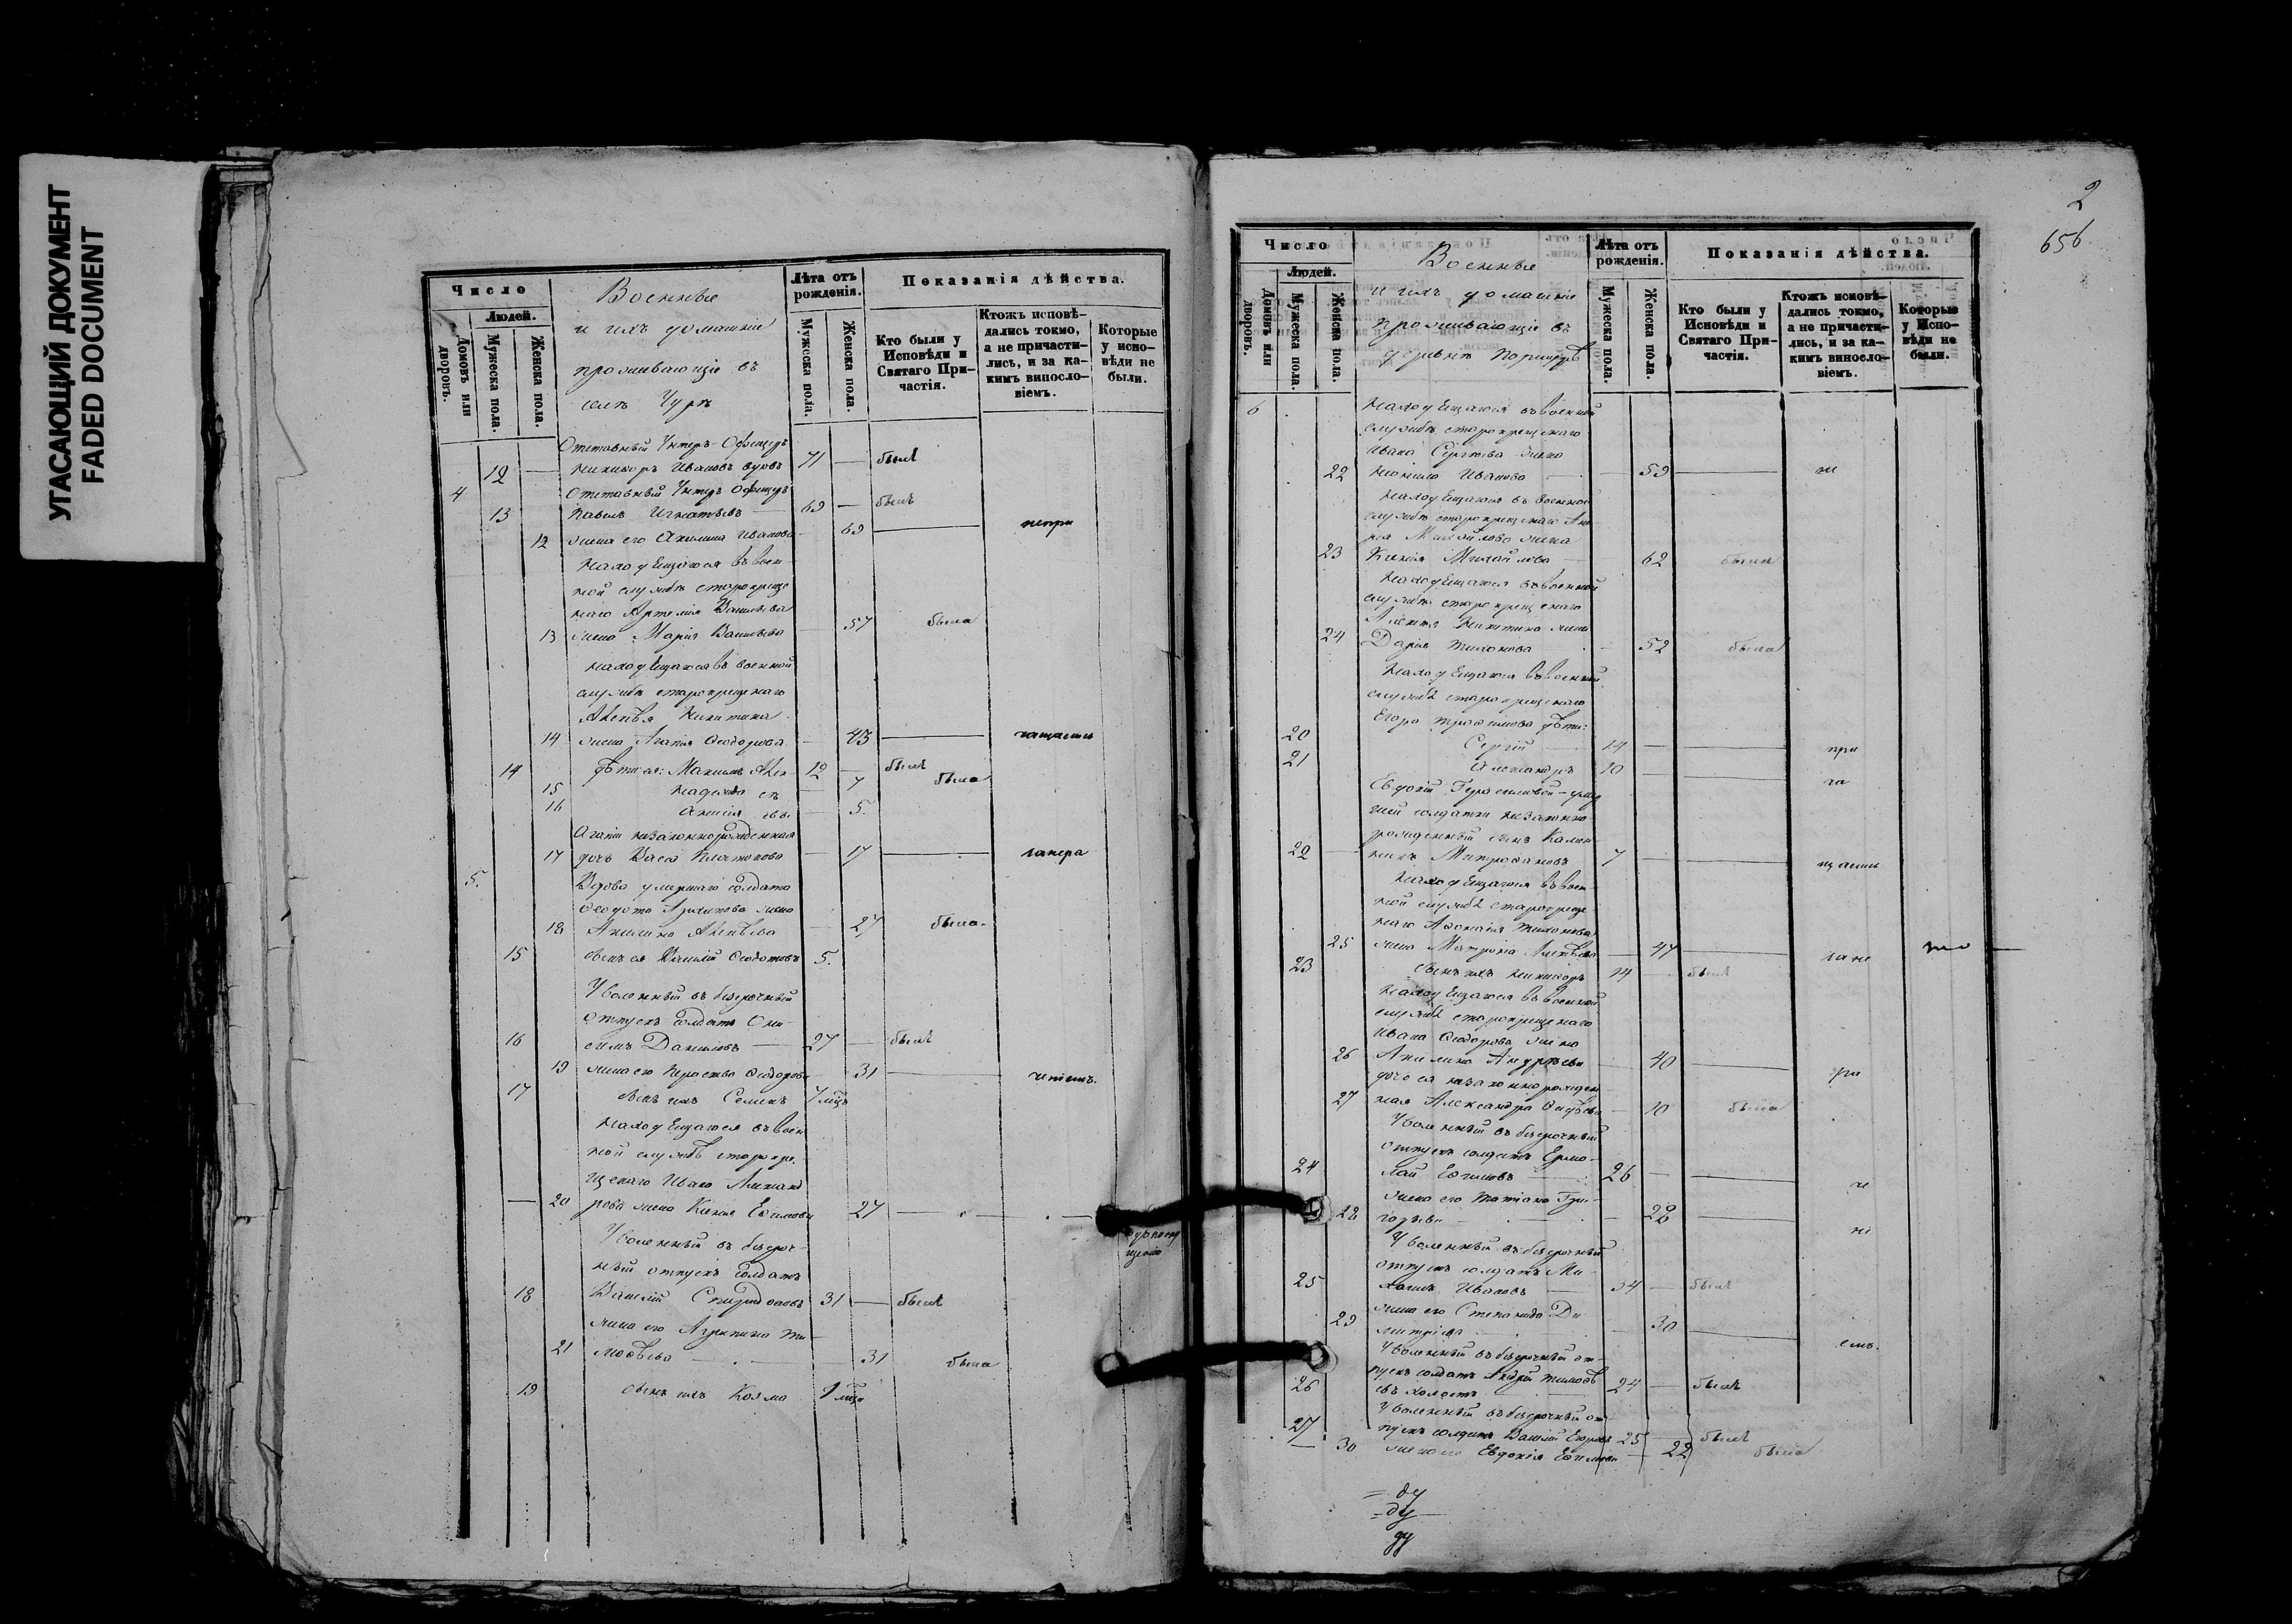 УГАСАЮЩИЙ ДОКУМЕНТ
FADED DOCUMENT
Число
Людей.
Домовъ или дворовъ.
Мужеска пола.
Женска пола.
Военные
и ихъ домашніе
проживающіе въ
селѣ Чурѣ
Лѣта отъ рожденія.
Мужеска пола.
Женска пола.
Показанія дѣйства.
Кто были у
Исповѣди и
Святаго При-
частія.
Ктожъ исповѣ-
дались токмо,
а не причасти-
лись, и за ка-
кимъ виносло-
віемъ.
Которые
у испо-
вѣди не
были.
Отставный Унтеръ-Офицеръ
12 — Никифоръ Ивановъ вдовъ 71 — былъ
4 Отставный Унтеръ Офицеръ
13 Павелъ Игнатьевъ — 69 — былъ
12 жена его Акилина Иванова 69 — непри
Находящагося въ воен-
ной службѣ старокреще
наго Артемія Васильева
13 жена Марія Васильева — 57 была
Находящагося въ военной
службѣ старокрещенаго
Никитина
14 жена Агафія Феодорова — 43 — частилась
14 дѣти ея: Максимъ 12 — былъ
15 Надежда — 7 была
16 Анисія — 5.
Агафіи незаконнорожденная
17 дочь Васса Платонова — 17 —
5. Вдова умершаго солдата
Феодота Архипова жена
18 Акилина — 27 была.
15 сынъ ея Василій Феодотовъ 5.
Уволенный въ безсрочный
отпускъ солдатъ Они-
16 симъ Даниловъ — 27 — былъ
19 жена его Феодорова 31 —
17 сынъ ихъ Семенъ 7 мѣс
Находящагося въ воен
ной службѣ старокре-
щенаго Ивана Александ
— 20 рова жена Ксенія Ефимова 27 — —
Уволенный въ безсроч-
ный отпускъ солдатъ
18 Василій Спиридоновъ 31 — былъ
жена его Агрипина Ти-
21 мофѣева — 31 была
19 сынъ ихъ Козма
2
656
Число
Людей.
Домовъ или дворовъ.
Мужеска пола.
Женска пола.
Военные
и ихъ домашніе
проживающіе въ
деревнѣ
Лѣта отъ рожденія.
Мужеска пола.
Женска пола.
Показанія дѣйства.
Кто были у
Исповѣди и
Святаго При-
частія.
Ктожъ исповѣ-
дались токмо,
а не причасти-
лись, и за ка-
кимъ виносло-
віемъ.
Которые
у Испо-
вѣди не
были.
6 Находящагося въ военной
службѣ старокрещенаго
Ивана Сергѣева жена
22 Неонила Иванова — 59 — не
Находящагося въ военной
службѣ старокрещенаго Анд-
рея Михайлова жена
23 Ксенія Михайлова — 62 была
Находящагося въ военной
службѣ старокрещенаго
Алексѣя Никитина жена
24 Дарья Тихонова — 52 была
Находящагося въ военной
службѣ старокрещенаго
Егора Трофимова дѣти:
20 Сергій 14 — — при
21 Александръ 10 — — ча
Евдокіи Герасимовой — умер
шей солдатки незаконно
рожденный сынъ Калин-
22 — никъ Митрофановъ 7 — — щались
Находящагося въ воен
ной службѣ старокреще
наго Афанасія Тихонова
25 жена Матрона — 47 —
23 сынъ ихъ Никифоръ 14 — былъ
Находящагося въ военной
службѣ старокрещенаго
Ивана Феодорова жена
26 Акилина Андрѣева — 40 —
дочь ея незаконнорожден-
27 ная Александра — 10 была
Уволенный въ безсрочный
отпускъ солдатъ Ермо-
24 лай Ефимовъ — 26 — —
жена его Татіана Гри-
28 горьева — 28 —
Уволенный въ безсрочный
отпускъ солдатъ Ми-
25 хаилъ Ивановъ — 34 — былъ
жена его Степанида Ди-
29 митріева 30 —
Уволенный въ безсрочный от-
пускъ солдатъ Андрей Тимофѣ
26 евъ холостъ 24 — былъ
Уволенный въ безсрочный от-
27 пускъ солдатъ Василій Егоровъ 25 — былъ
— 30 жена его Евдокія Ефимова — 22 была